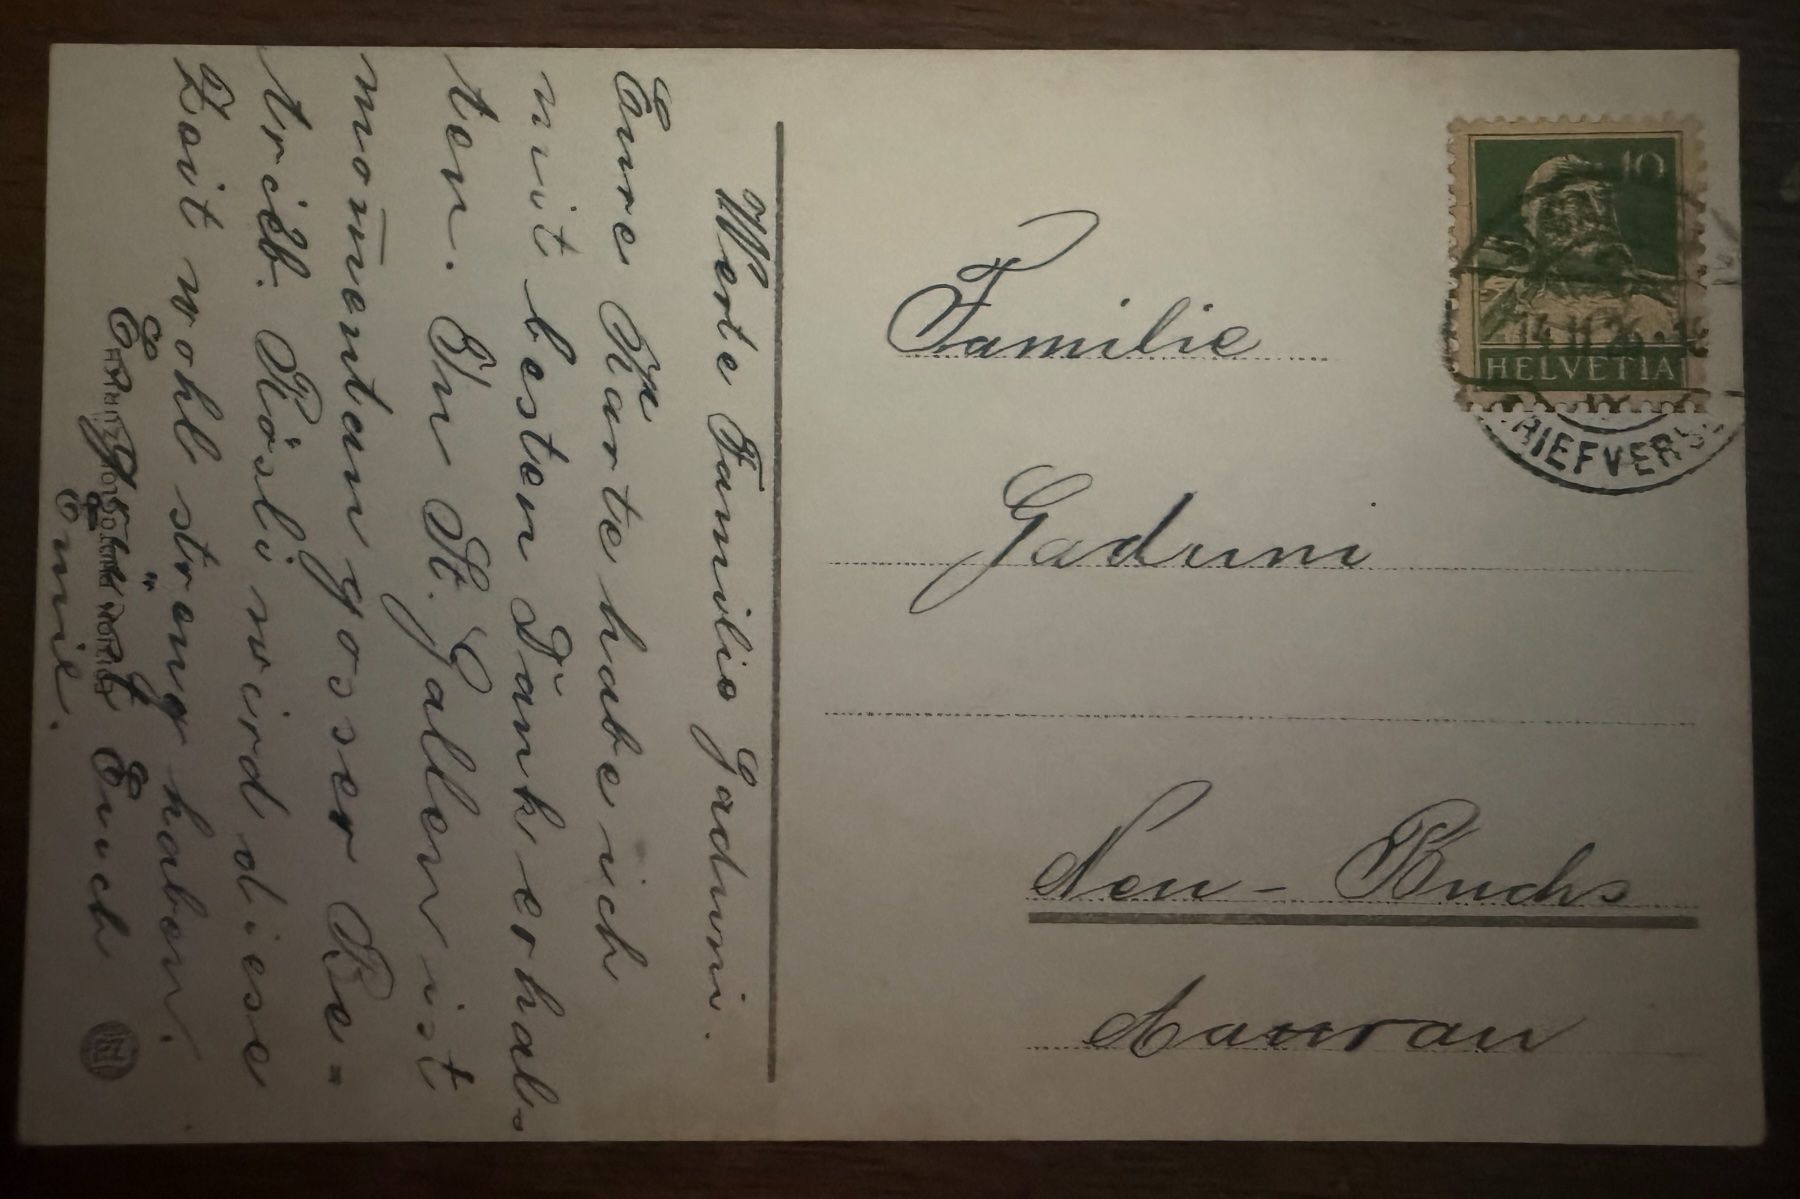 Werte Familie Gaduni.
Eure Karte habe ich
mit besten Dank erhal-
ten. In St. Gallen ist
momentan gosser Be=
trieb. Rösli wird diese
Zeit wohl sträng haben.
Es grüßt Euch
Emil.
Familie
Gaduni
Neu-Buchs
Aaurau
10
HELVETIA
14.II.26
BRIEFVERS